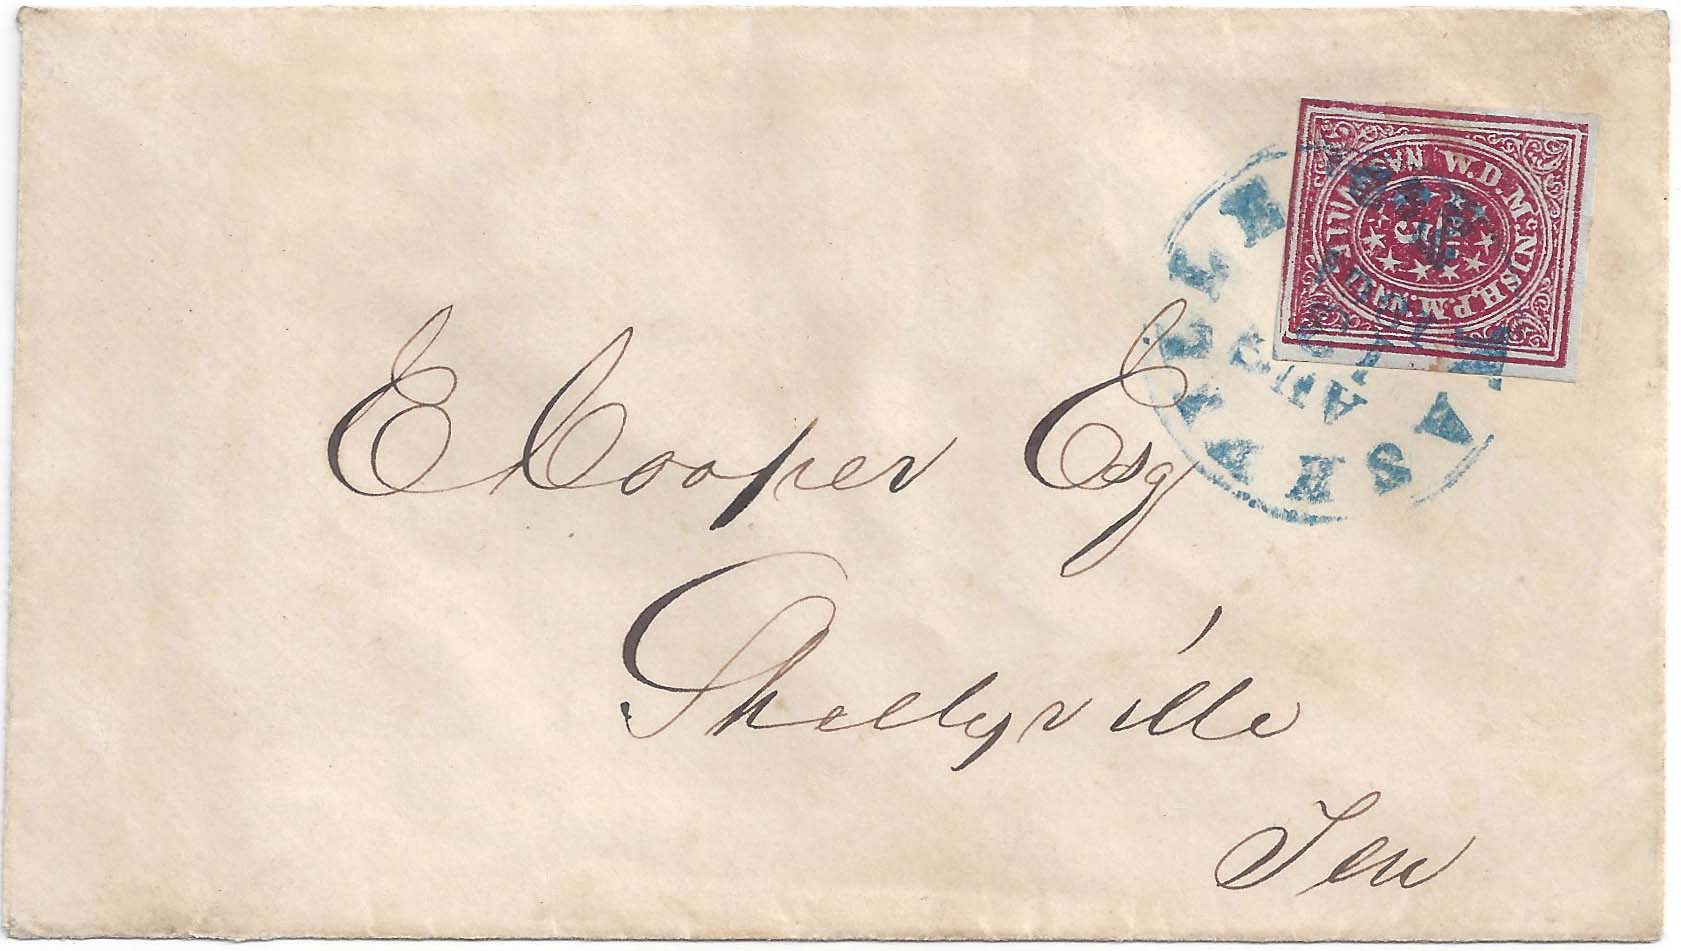 W.D.M'NISH.P.M. NASHVILLE
5
NASHVILLE
AUG
E Cooper Esq
Shelbyville
Ten